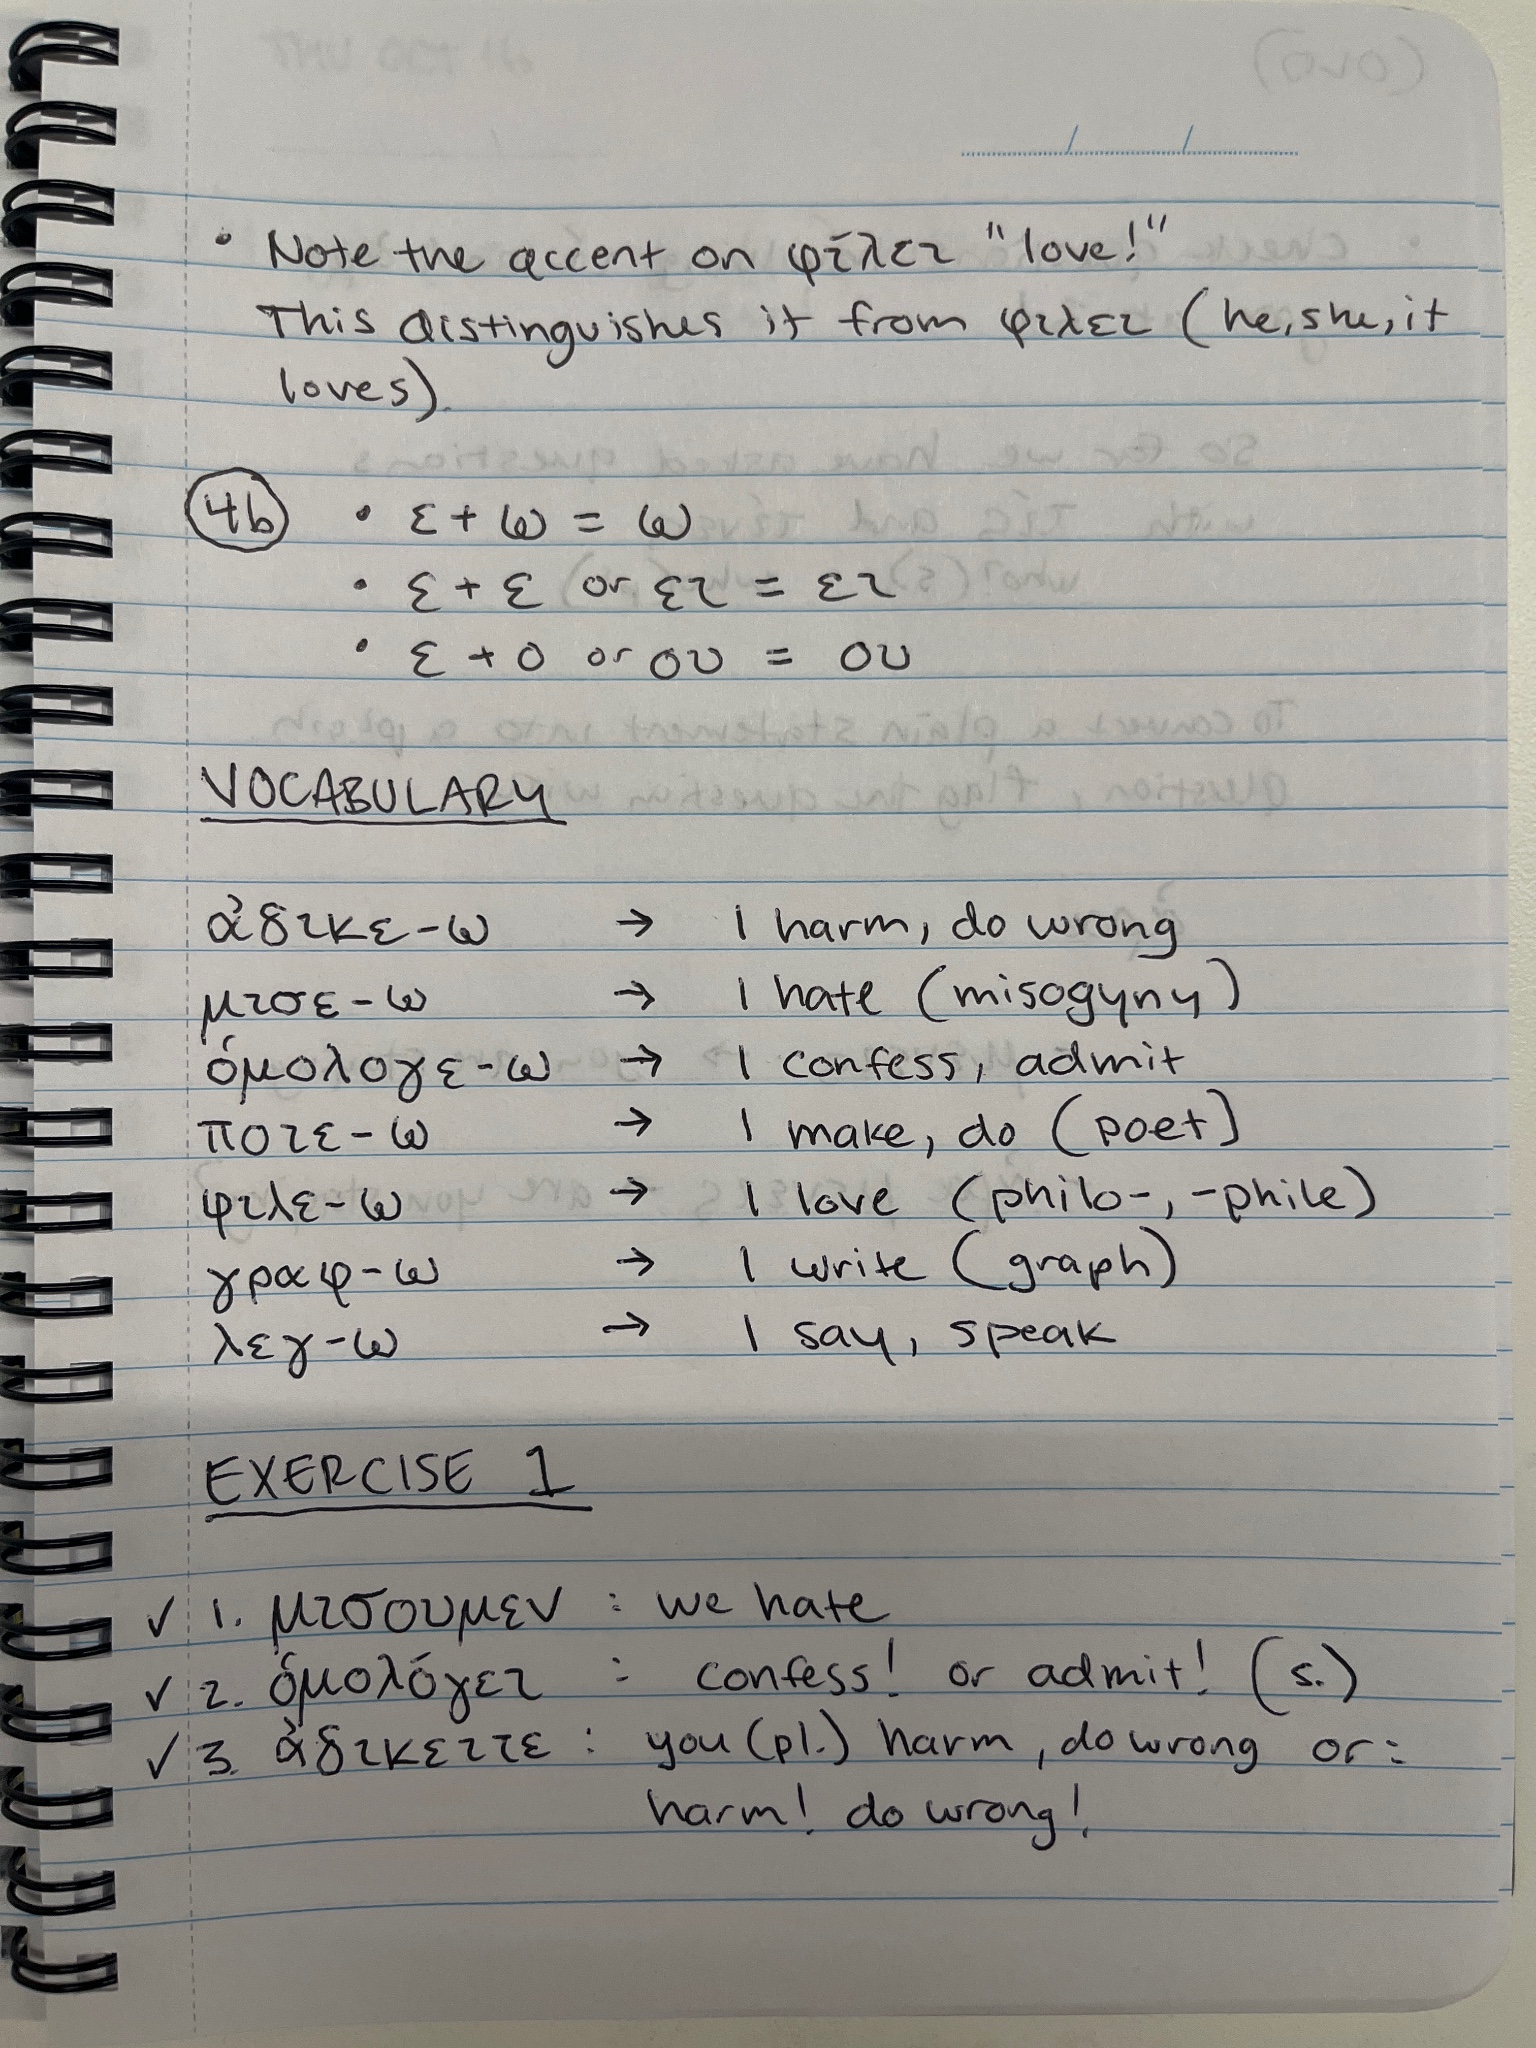 • Note the accent on φίλει "love!"
This distinguishes it from φιλει (he, she, it
loves).
4b • ε + ω = ω
• ε + ε or ει = ει
• ε + ο or ου = ου
VOCABULARY
ἀδικε-ω → I harm, do wrong
μισε-ω → I hate (misogyny)
ὁμολογε-ω → I confess, admit
ποιε-ω → I make, do (poet)
φιλε-ω → I love (philo-, -phile)
γραφ-ω → I write (graph)
λεγ-ω → I say, speak
EXERCISE 1
✓ 1. μισουμεν : we hate
✓ 2. ὁμολόγει : confess! or admit! (s.)
✓ 3. ἀδικειτε : you (pl.) harm, do wrong or:
harm! do wrong!